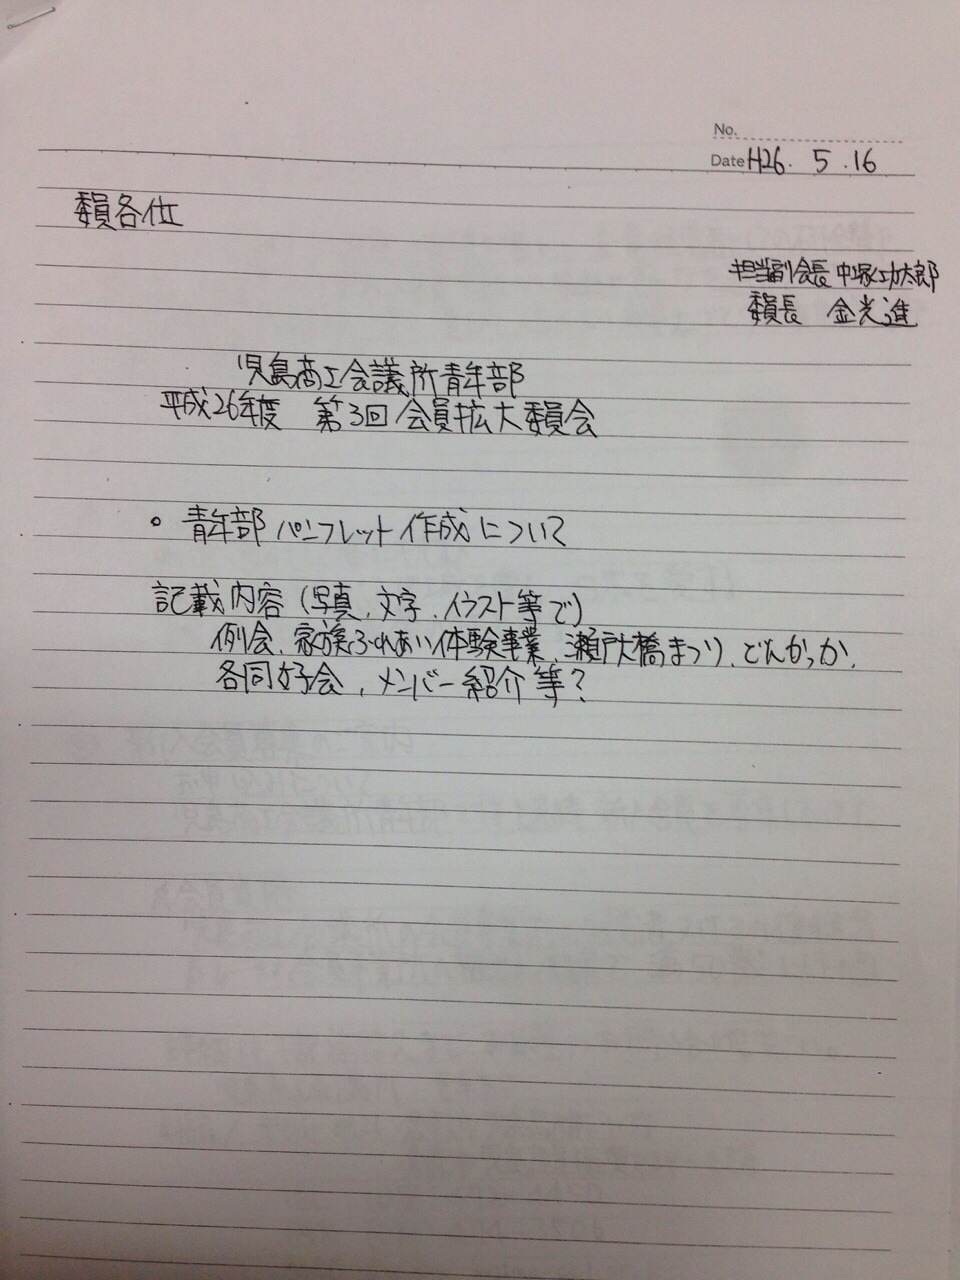 No.
Date H26. 5. 16
委員各位
担当副会長 中塚功太郎
委員長 金光進
児島商工会議所青年部
平成26年度 第3回会員拡大委員会
。青年部パンフレット作成について
記載内容（写真、文字、イラスト等で）
例会、家族ふれあい体験事業、瀬戸大橋まつり、どんかっか、
各同好会、メンバー紹介等？